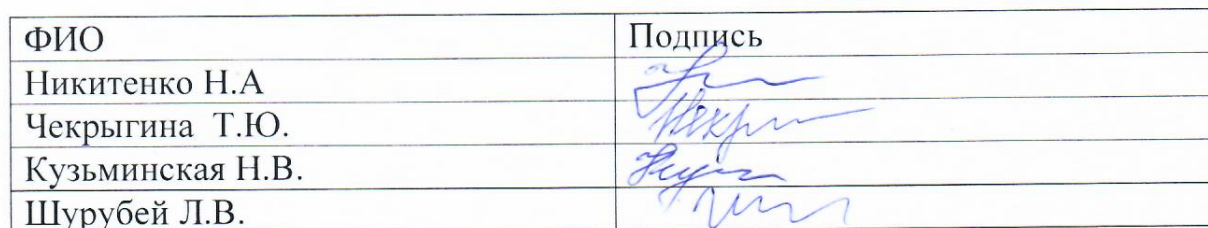 ФИО Подпись
Никитенко Н.А
Чекрыгина Т.Ю.
Кузьминская Н.В.
Шурубей Л.В.